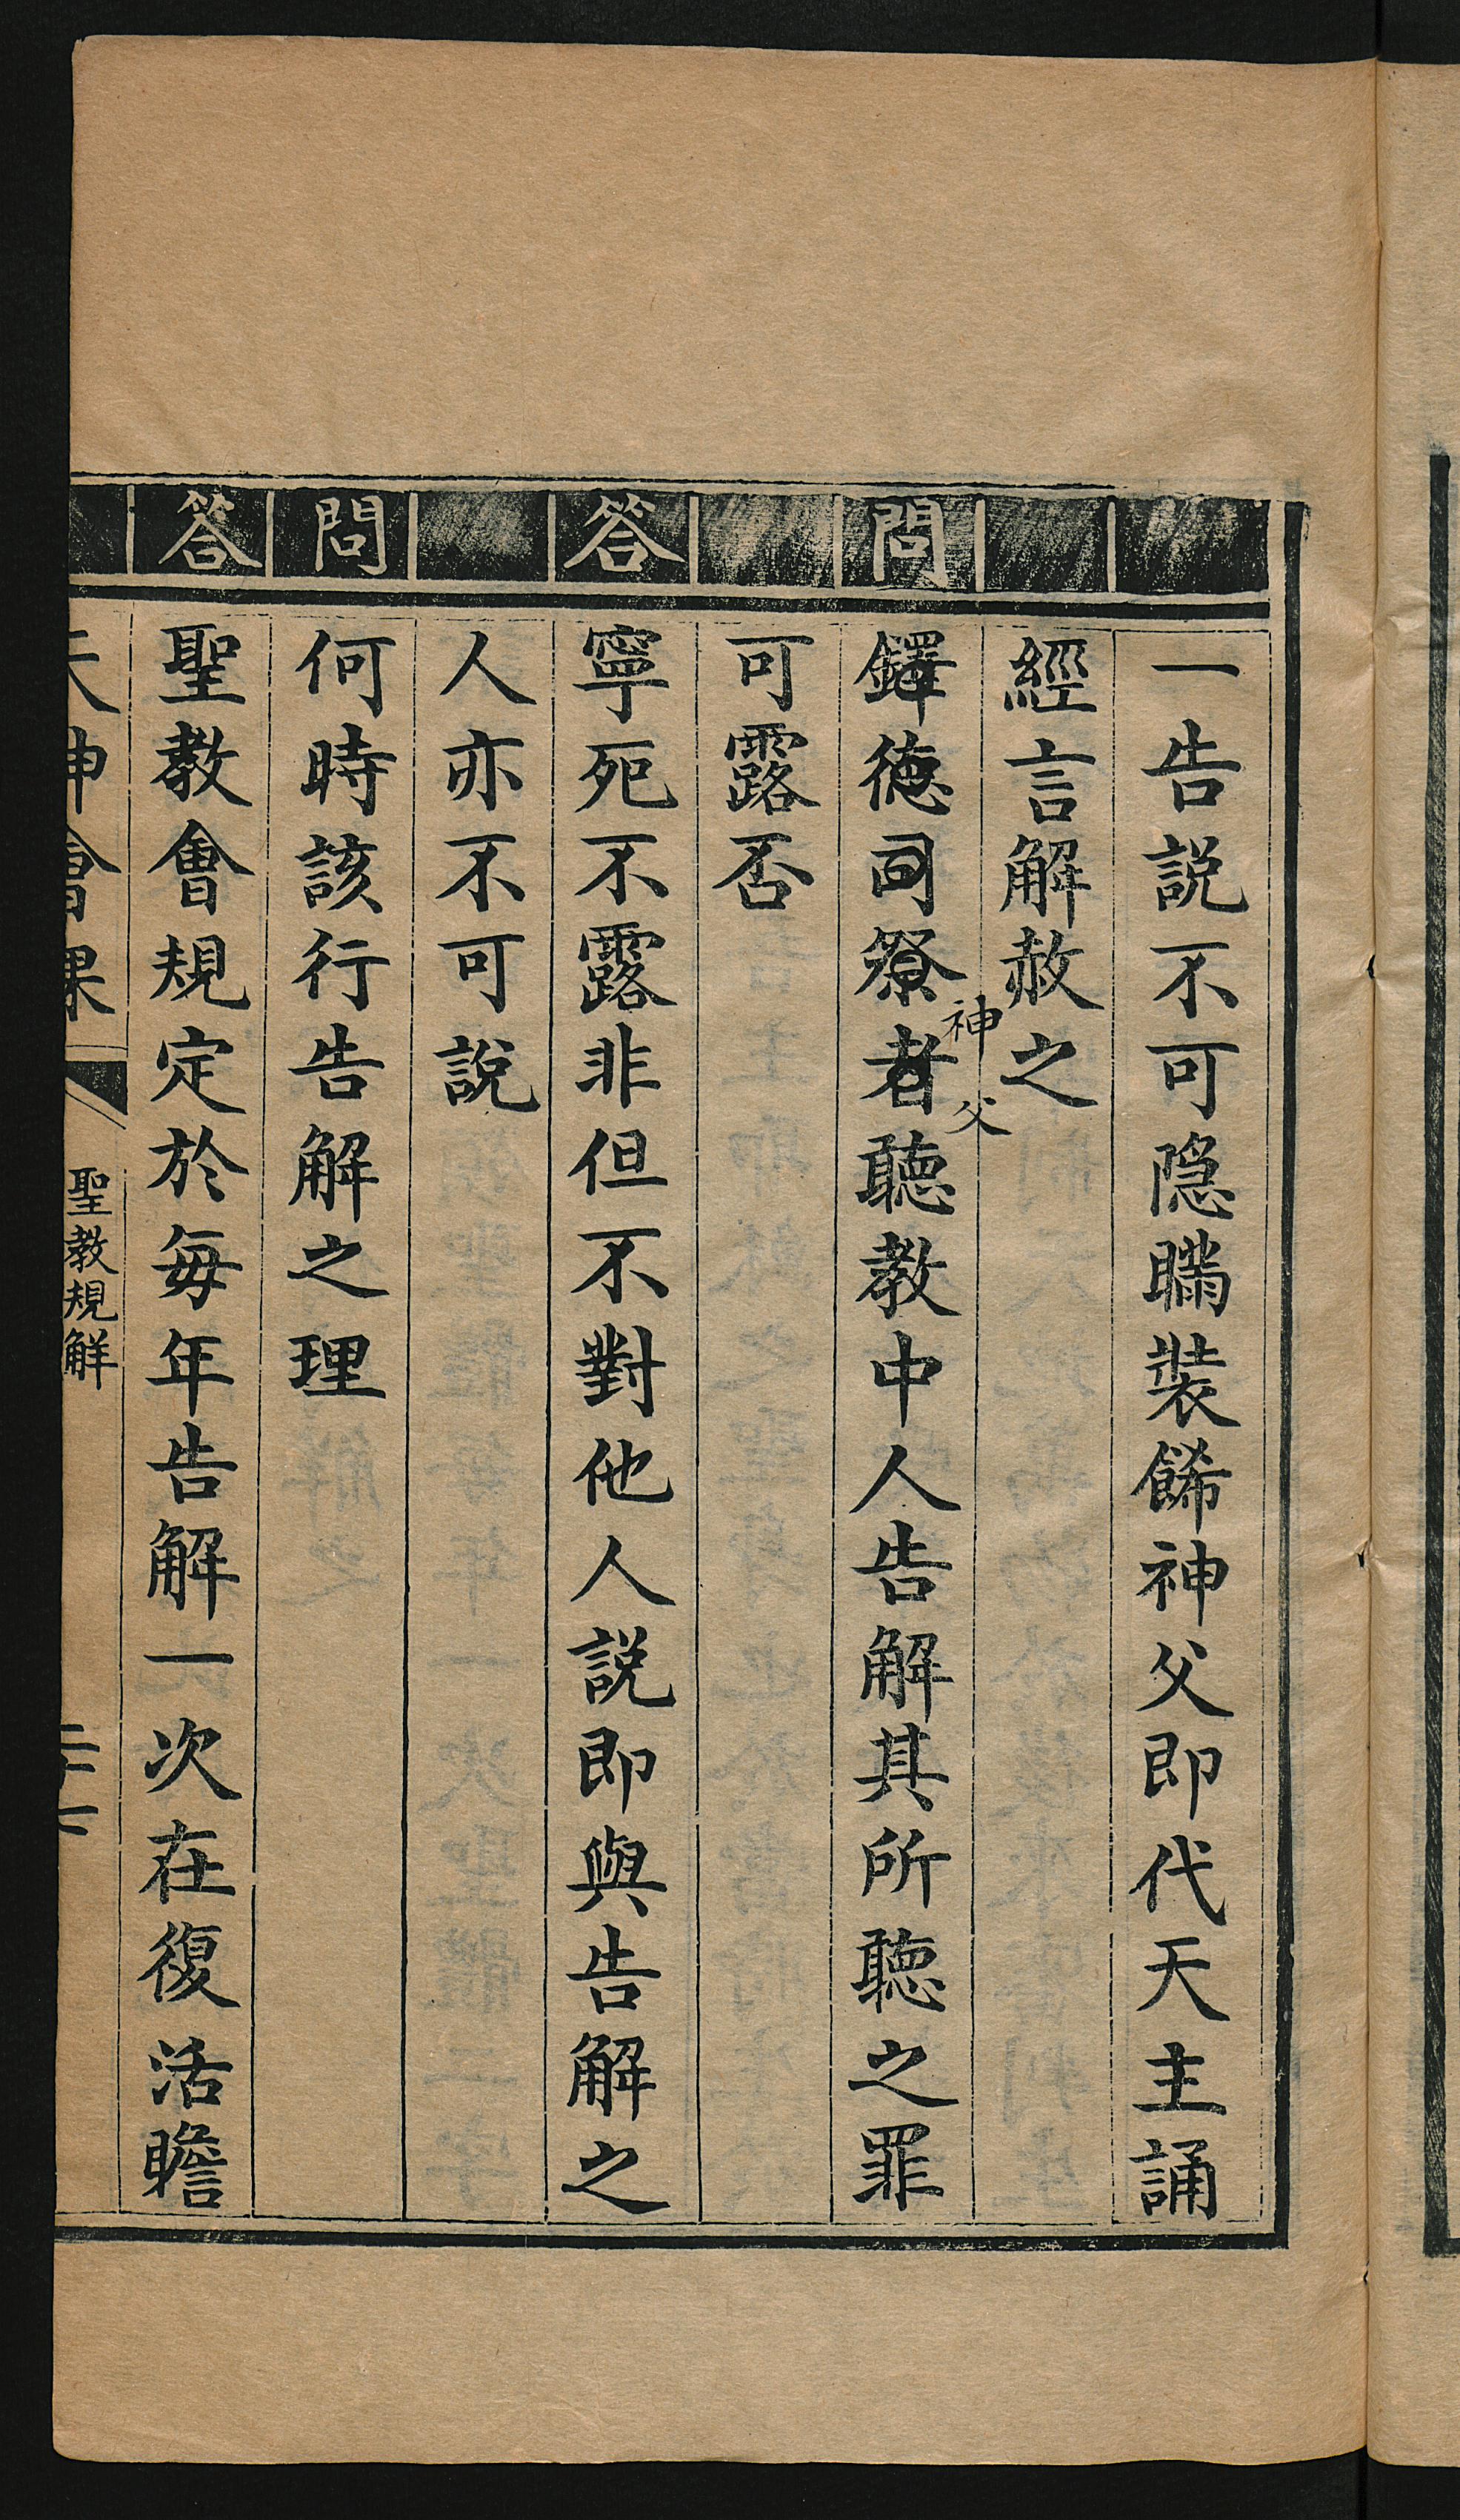 一告説不可隐瞞裝餙神父即代天主誦
經言解赦之
問
鐸德司祭者聽教中人告解其所聽之罪
神父
可露否
答
寧死不露非但不對他人説即與告解之
人亦不可說
問
何時該行告解之理
答
聖教會規定於每年告解一次在復活瞻
天神會課
聖教規觧
二十七